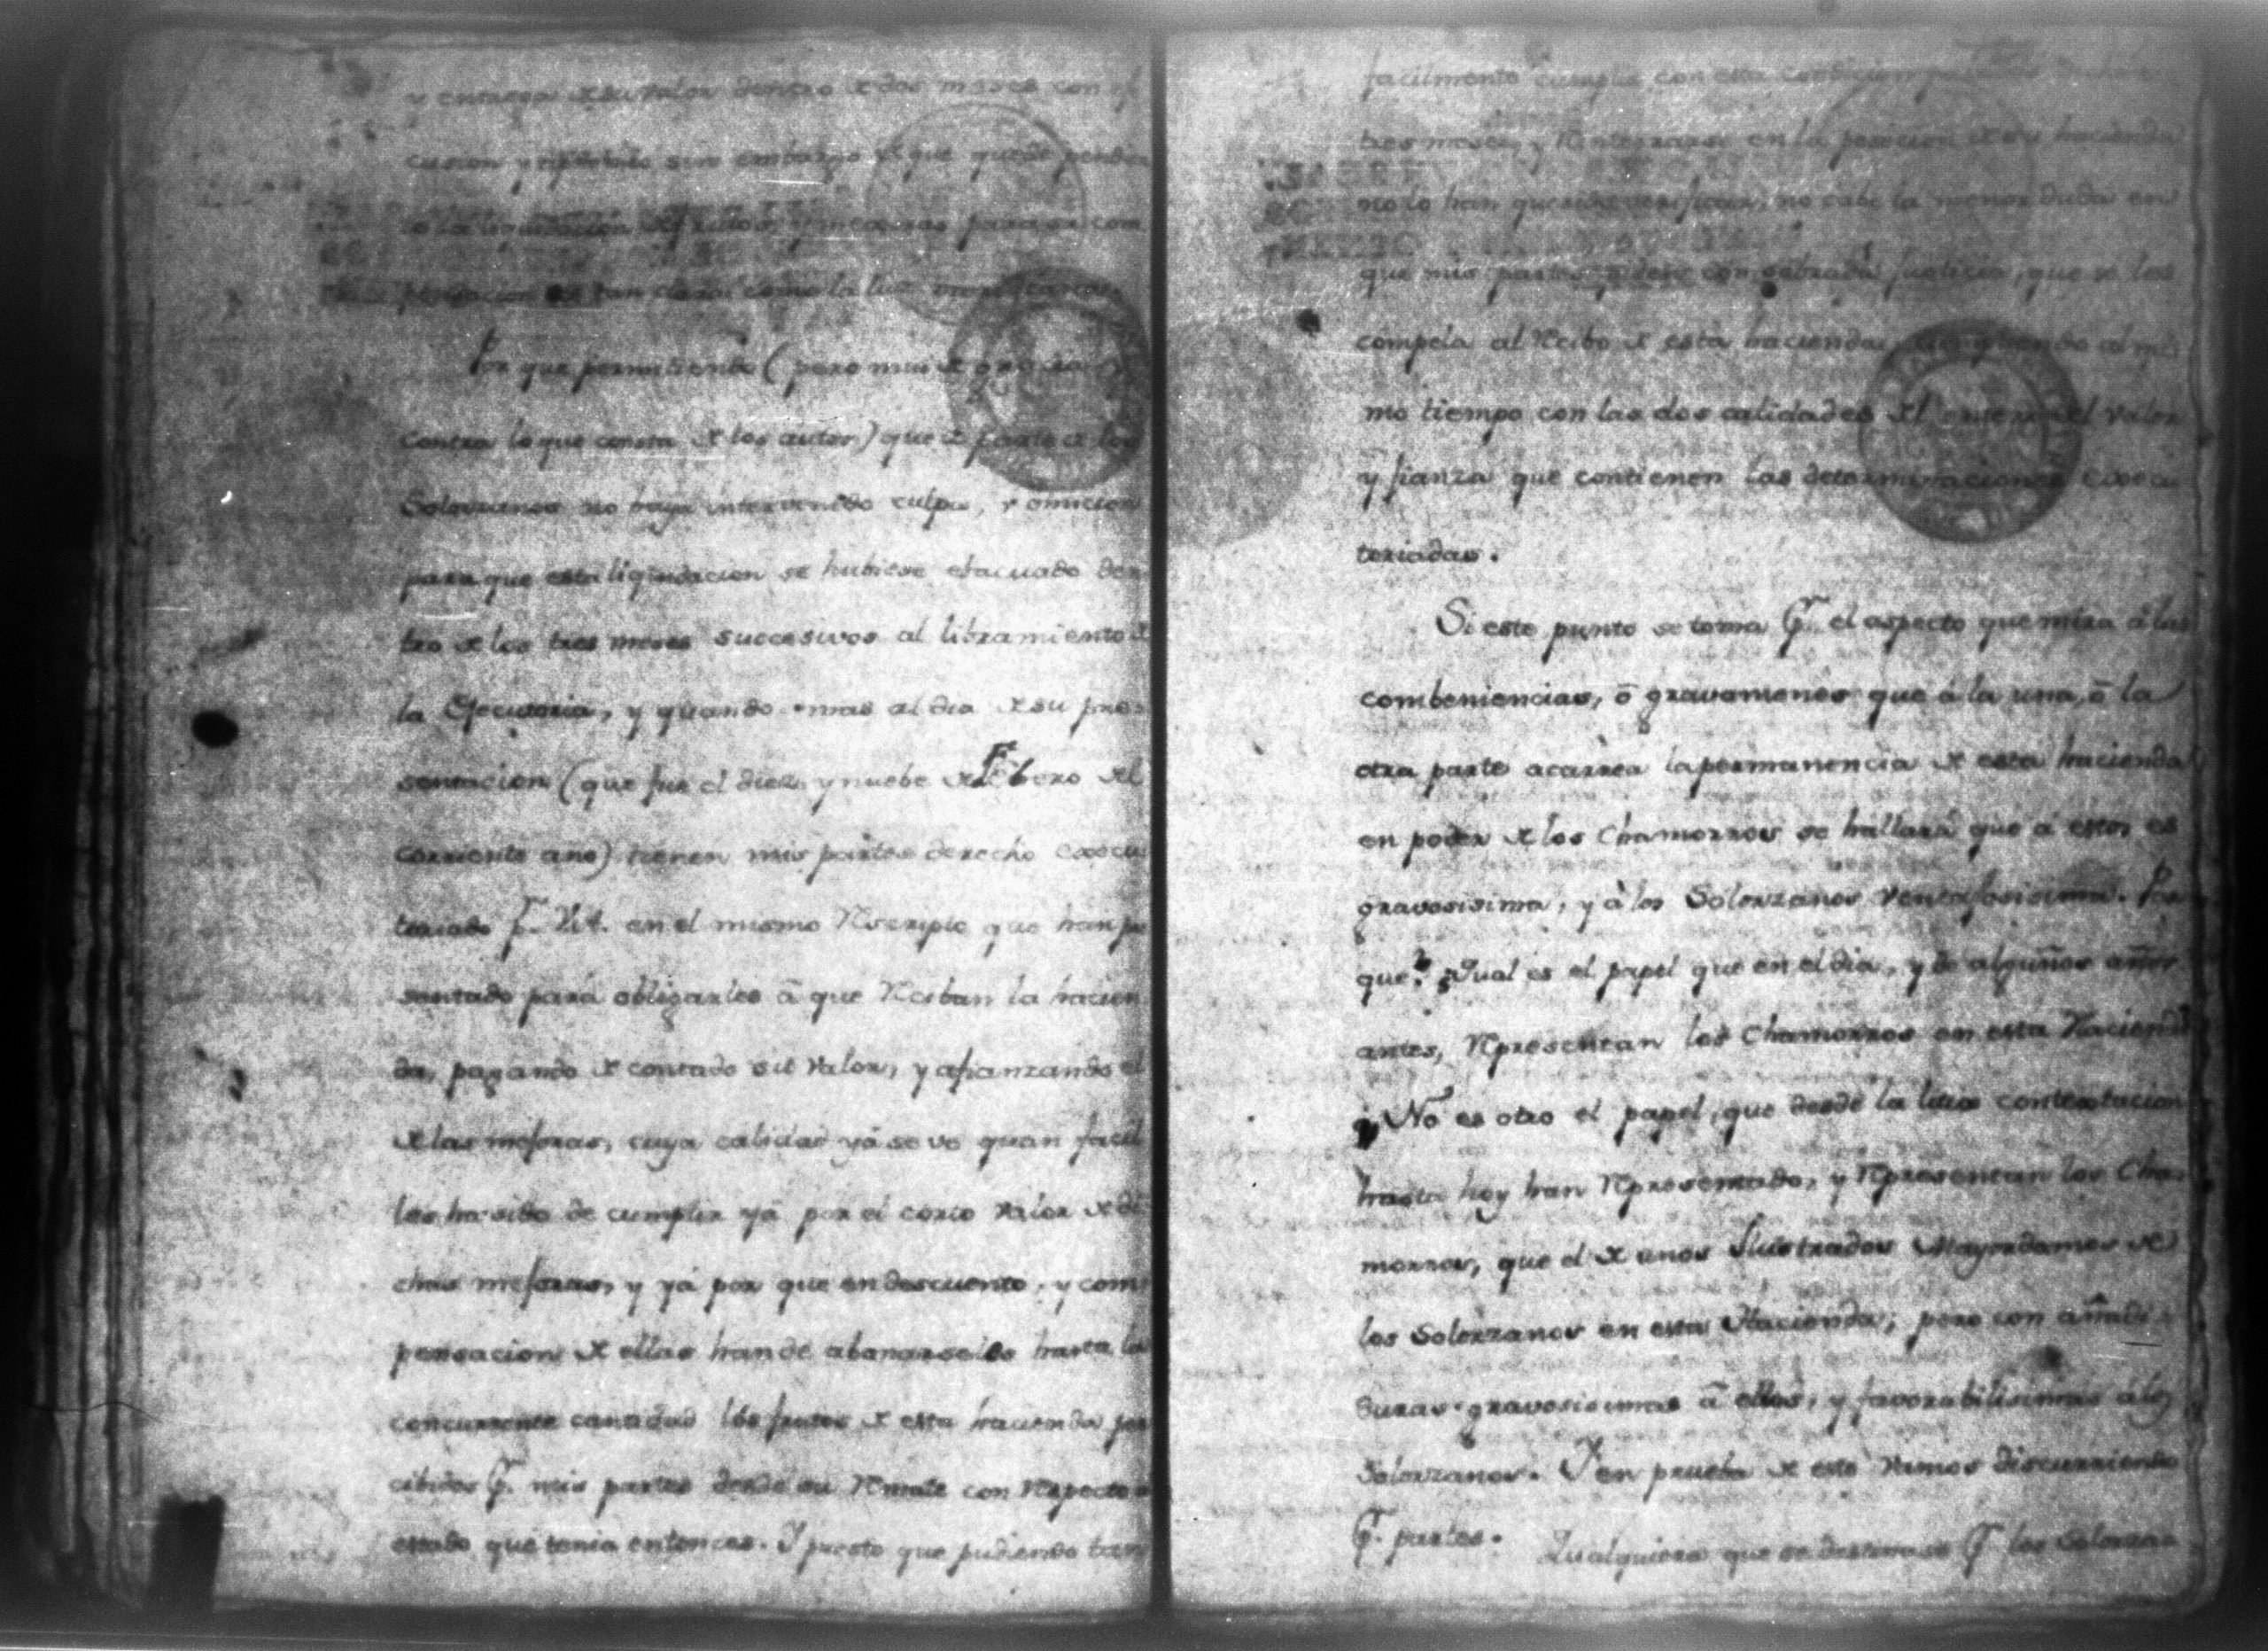 y entrega de su valor dentro de dos meses con
cucion y sin embargo de que quede pendien
te la liquidacion de frutos, y mejoras para su com
pensacion es tan clara como la luz
Por que permitiendo (pero mui de gracia, y
contra lo que consta de los autos) que de parte de los
Solorzanos no haya intervenido culpa, y omicion
para que esta liquidacion se hubiese efacuado den
tro de los tres meses succesivos al libramiento de
la Ejecutoria, y quando mas al dia de su pre
sentacion (que fue el diez, y nuebe de Febrero del
corriente año) tienen mis partes derecho executo
teriado pr. V.A. en el mismo Rescripto que han pre
sentado pará obligarles á que Reciban la hacien
da, pagando de contado su valor, y afianzando el
de las mejoras, cuya calidad yá se ve quan facil
les ha sido de cumplir yá por el corto valor de di
chas mejoras, y yá por que en descuento, y com
pensacion de ellas han de abonarseles hasta la
concurrente cantidad los frutos de esta hacienda per
cibidos pr. mis partes desde su Remate con Respecto al
estado que tenia entonces. Y puesto que pudiendo tan
facilmente cumplir con esta condicion
tres meses, y Reintegrarse en la posecion de su hacienda
no lo han querido verificar, no cabe la menor duda en
que mis partes piden con sobrada justicia, que se les
compela al Recibo de esta hacienda, al mis
mo tiempo con las dos calidades del entero del valor
y fianza que contienen las determinaciones execu
teriadas.
Si este punto se toma pr. el aspecto que mira á las
combeniencias, ó gravamenes que á la una, ó la
otra parte acarrea la permanencia de esta hacienda
en poder de los Chamorros se hallará que á estos es
gravosisima, y á los Solorzanos ventajosisima. Por
que? Qual es el papel que en el dia, y de algunos años
antes, Representan los Chamorros en esta Hacienda
No es otro el papel, que desde la litis contestacion
hasta hoy han Representado, y Representan los Cha
morros, que el de unos Ilustrados Mayordomos de
los Solorzanos en esta Hacienda; pero con añadi
duras gravosisimas á ellos, y favorabilisimas á los
Solorzanos. Y en prueba de esto vamos discurriendo
pr. partes. Qualquiera que se destinase pr. los Solorza